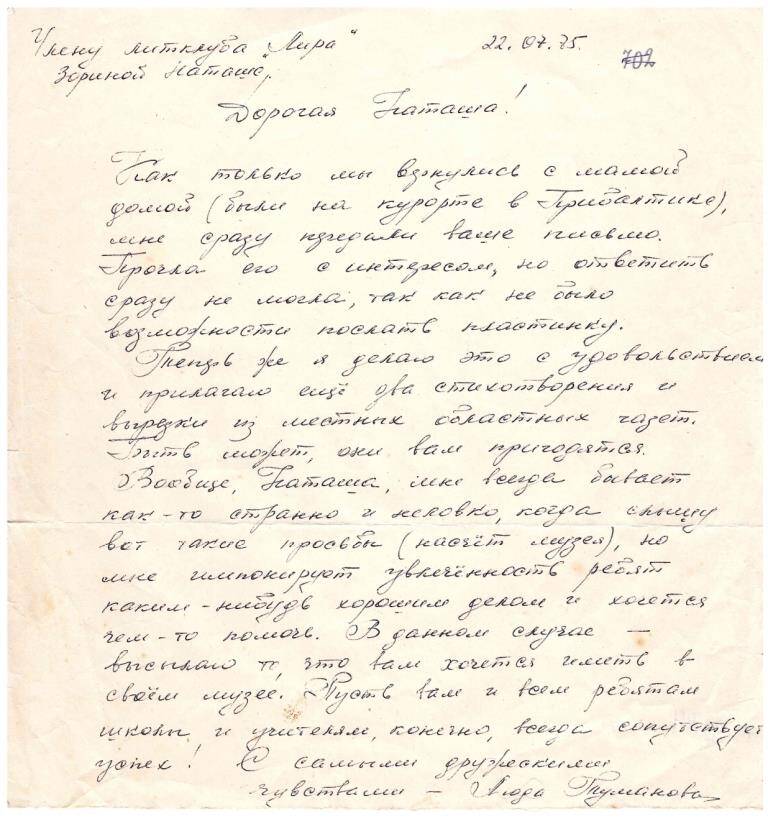 Члену литклуба „Лира"
22.07.75.
702
Зориной Наташе.
Дорогая Наташа!
Как только мы вернулись с мамой
домой (были на курорте в Прибалтике),
мне сразу передали ваше письмо.
Прочла его с интересом, но ответить
сразу не могла, так как не было
возможности послать пластинку.
Теперь же я делаю это с удовольствием
и прилагаю ещё два стихотворения и
вырезки из местных областных газет.
Быть может, они вам пригодятся.
Вообще, Наташа, мне всегда бывает
как-то странно и неловко, когда слышу
вот такие просьбы (насчёт музея), но
мне импонирует увлечённость ребят
каким-нибудь хорошим делом и хочется
чем-то помочь. В данном случае –
высылаю то, что вам хочется иметь в
своём музее. Пусть вам и всем ребятам
школы и учителям, конечно, всегда сопутствует
успех! С самыми дружескими
чувствами – Люда Туманова